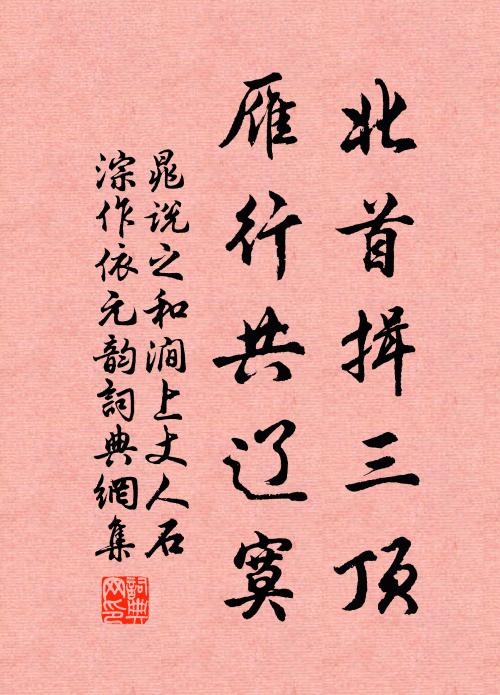 北首揖三顶
雁行共辽寞
晁说之和涧上丈人石
淙作依元韵詞典網集
詞典
网印